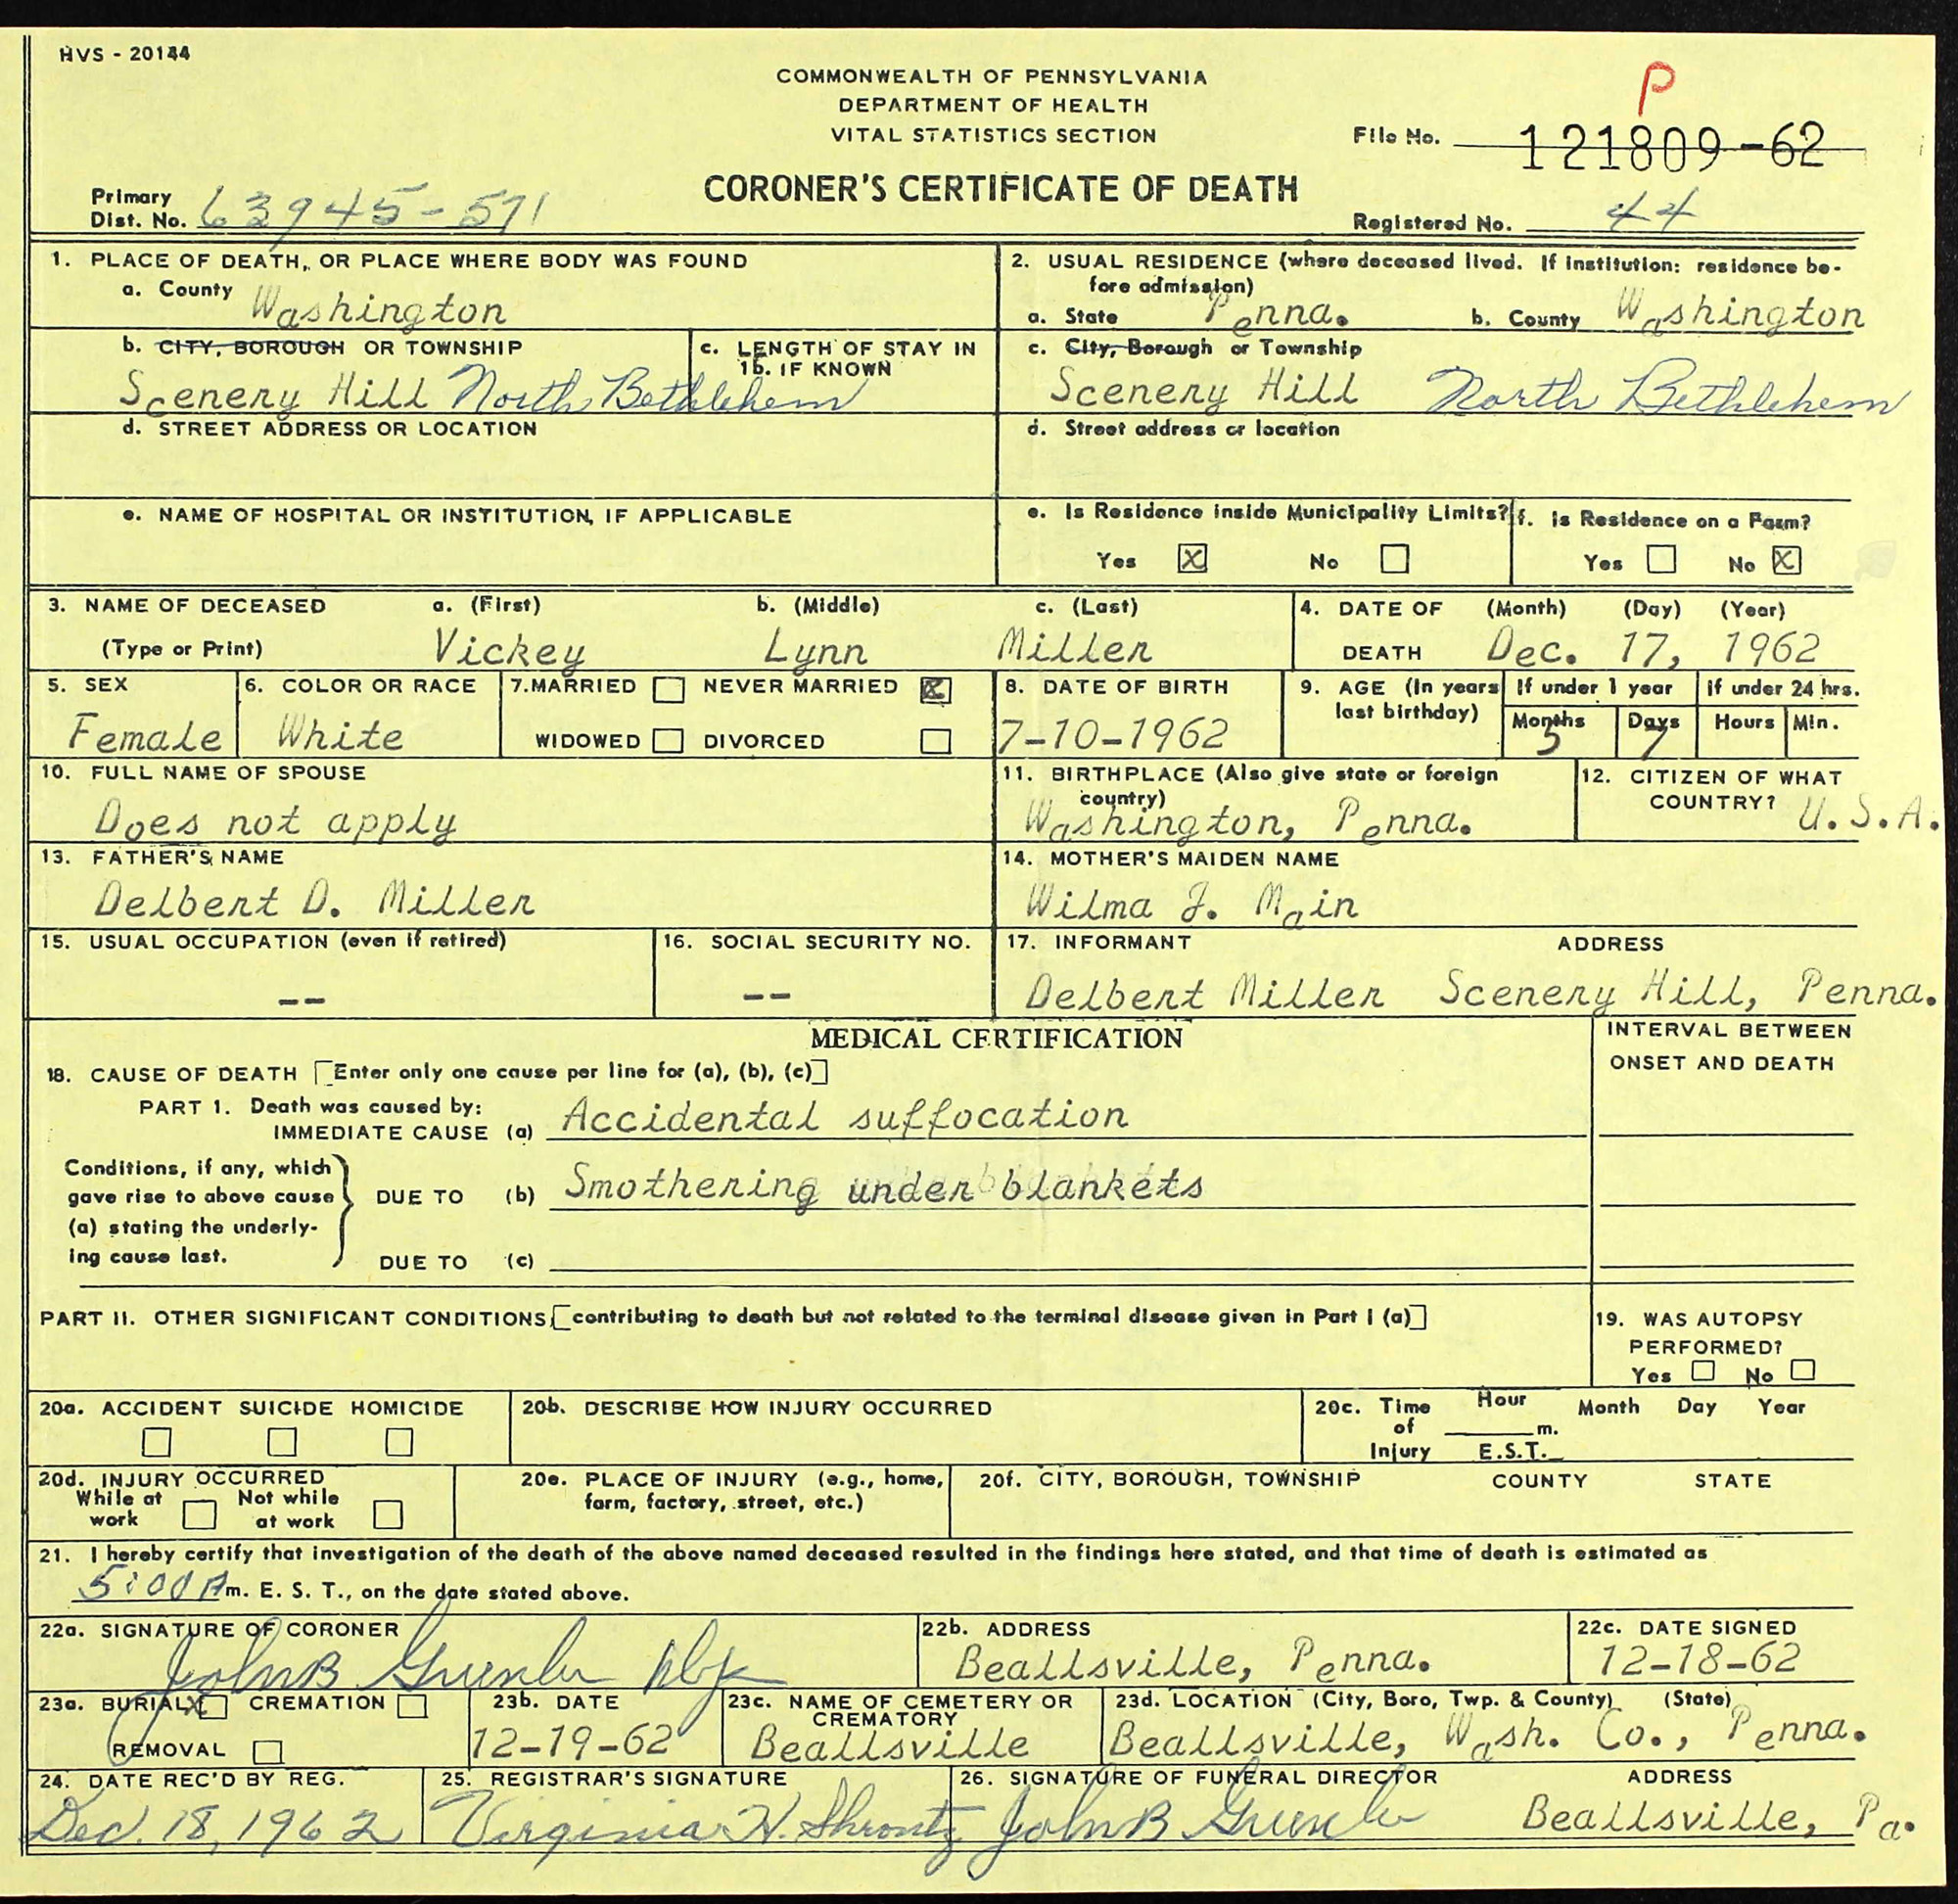 HVS - 20144
COMMONWEALTH OF PENNSYLVANIA
DEPARTMENT OF HEALTH
VITAL STATISTICS SECTION
CORONER'S CERTIFICATE OF DEATH
P
File No. 121809-62
Primary
Dist. No. 63945-571
Registered No. 44
1. PLACE OF DEATH, OR PLACE WHERE BODY WAS FOUND
a. County Washington
b. CITY, BOROUGH OR TOWNSHIP
Scenery Hill North Bethlehem
c. LENGTH OF STAY IN
1b. IF KNOWN
d. STREET ADDRESS OR LOCATION
e. NAME OF HOSPITAL OR INSTITUTION, IF APPLICABLE
2. USUAL RESIDENCE (where deceased lived. If institution: residence be-
fore admission)
a. State Penna. b. County Washington
c. City, Borough or Township
Scenery Hill North Bethlehem
d. Street address or location
e. Is Residence inside Municipality Limits?
Yes X No
f. Is Residence on a Farm?
Yes No X
3. NAME OF DECEASED a. (First) b. (Middle) c. (Last)
(Type or Print) Vickey Lynn Miller
4. DATE OF (Month) (Day) (Year)
DEATH Dec. 17, 1962
5. SEX
Female
6. COLOR OR RACE
White
7. MARRIED NEVER MARRIED X
WIDOWED DIVORCED
8. DATE OF BIRTH
7-10-1962
9. AGE (In years
last birthday)
If under 1 year
Months Days
5 7
If under 24 hrs.
Hours Min.
10. FULL NAME OF SPOUSE
Does not apply
11. BIRTHPLACE (Also give state or foreign
country)
Washington, Penna.
12. CITIZEN OF WHAT
COUNTRY? U.S.A.
13. FATHER'S NAME
Delbert D. Miller
14. MOTHER'S MAIDEN NAME
Wilma J. Main
15. USUAL OCCUPATION (even if retired)
--
16. SOCIAL SECURITY NO.
--
17. INFORMANT ADDRESS
Delbert Miller Scenery Hill, Penna.
MEDICAL CERTIFICATION
INTERVAL BETWEEN
ONSET AND DEATH
18. CAUSE OF DEATH [Enter only one cause per line for (a), (b), (c)]
PART 1. Death was caused by:
IMMEDIATE CAUSE (a) Accidental suffocation
Conditions, if any, which
gave rise to above cause
(a) stating the underly-
ing cause last.
DUE TO (b) Smothering under blankets
DUE TO (c)
PART II. OTHER SIGNIFICANT CONDITIONS [contributing to death but not related to the terminal disease given in Part I (a)]
19. WAS AUTOPSY
PERFORMED?
Yes No
20a. ACCIDENT SUICIDE HOMICIDE
20b. DESCRIBE HOW INJURY OCCURRED
20c. Time Hour Month Day Year
of m.
Injury E.S.T.
20d. INJURY OCCURRED
While at Not while
work at work
20e. PLACE OF INJURY (e.g., home,
farm, factory, street, etc.)
20f. CITY, BOROUGH, TOWNSHIP COUNTY STATE
21. I hereby certify that investigation of the death of the above named deceased resulted in the findings here stated, and that time of death is estimated as
5:00 A m. E. S. T., on the date stated above.
22a. SIGNATURE OF CORONER
John B
22b. ADDRESS
Beallsville, Penna.
22c. DATE SIGNED
12-18-62
23a. BURIAL X CREMATION
REMOVAL
23b. DATE
12-19-62
23c. NAME OF CEMETERY OR
CREMATORY
Beallsville
23d. LOCATION (City, Boro, Twp. & County) (State)
Beallsville, Wash. Co., Penna.
24. DATE REC'D BY REG.
Dec. 18, 1962
25. REGISTRAR'S SIGNATURE
Virginia H. Shrontz
26. SIGNATURE OF FUNERAL DIRECTOR ADDRESS
John B Beallsville, Pa.